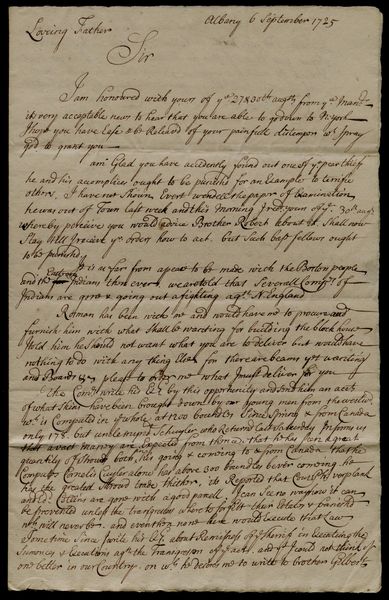 Albany 6 September 1725
Loveing Father
Sir
I am honoured with yours of ye 27 & 30th augst from ye Manor
its very acceptable news to hear that you are able to go down to N york
I hope you have Ease & be Releasd of your painfull distemper wch I pray
god to grant you
am Glad you have accidently found out one of ye pear thiefs
he and his acomplices ought to be punishd for an Example to terrifie
others. I have not Shown Evert wendell the paper of Examination
he was out of Town last week and this Morning I red yours of ye 30th augt
whereby perceive you would advice Brother Robert about it. Shall now
Stay till I receive yr order how to act. but Such base fellows ought
to be punished
It is as far from a peace to be made with the Boston people
and the Eastern Indians than ever. we are told that Severall Compys of
Indians are gone & going out a fighting agst N England
Rotman has been with me and would have me to procure and
furnish him with what shall be wanting for building the block house
I told him he should not want what you are to deliver but would have
nothing to do with any thing Else for there are beams yet wanting
and Boards &c please to order me what I must deliver for you
the Comrs write his Ex by this opportunity and send him an acct
of what have been brought down by our young men from the westwd
wch is Computed in ye whole at 1200 bound Skins Since Spring & from Canada
only 178. but unless myndt Schuyler who Returned last Saturday Informs us
that a vast many are Expected from thence. that he has seen a great
quantity of Stroud both going & coming to & from Canada that he
Computes Cornelis Cuyler alone has above 300 bundles bever coming he
has the greatest Stroud trade thither, its Reported that
and Ed Collins are gone with a good parcell. I can See no way how it can
be prevented unless the transgressors
will never be. and even then none here would execute that Law
Sometime Since I write his Ex about Remissness of ye Sherif in Executing the
Sumons & Executions agst the Transgressors of ye acts. and yt I could not think of
one better in our Country. on wch he desires me to write to brother Gilbert